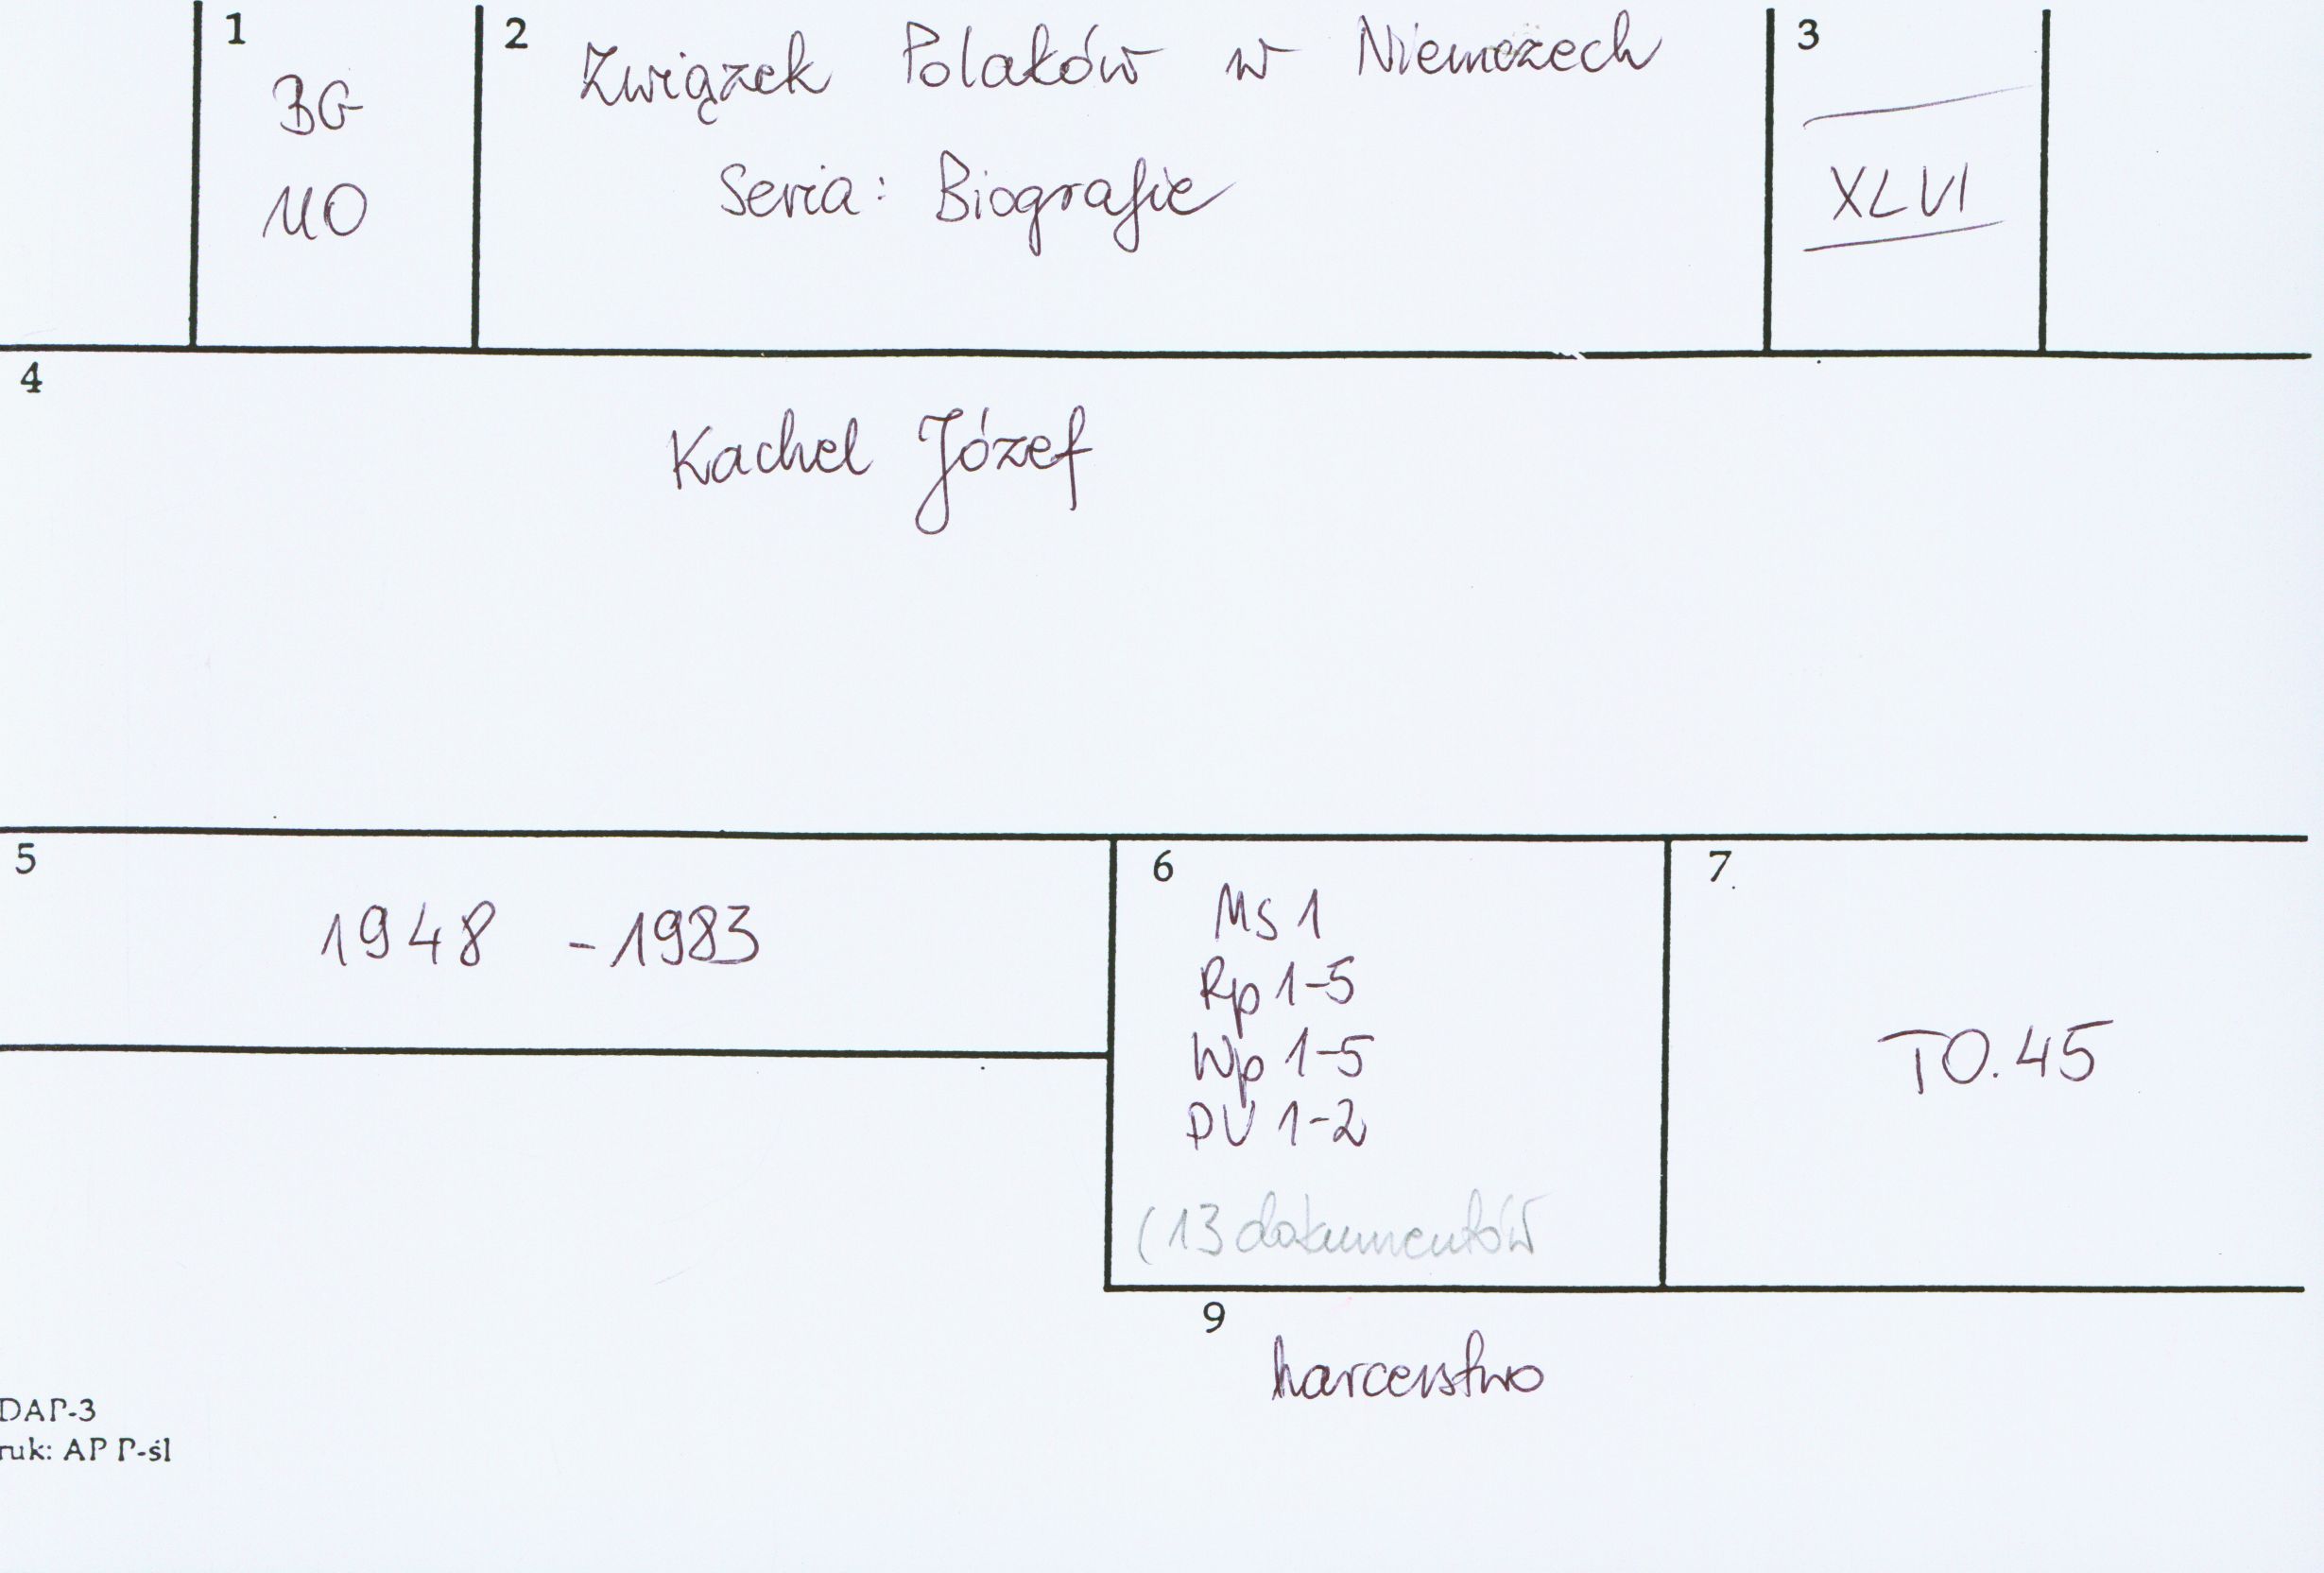 1
BG
110
2
Związek Polaków w Niemczech
Seria: Biografie
3
XLVI
4
Kachel Józef
5
1948 - 1983
6
Ms 1
Rp 1-5
Wp 1-5
DU 1-2
(13 dokumentów
7
TO.45
9
harcerstwo
DAP-3
ruk: AP P-śl